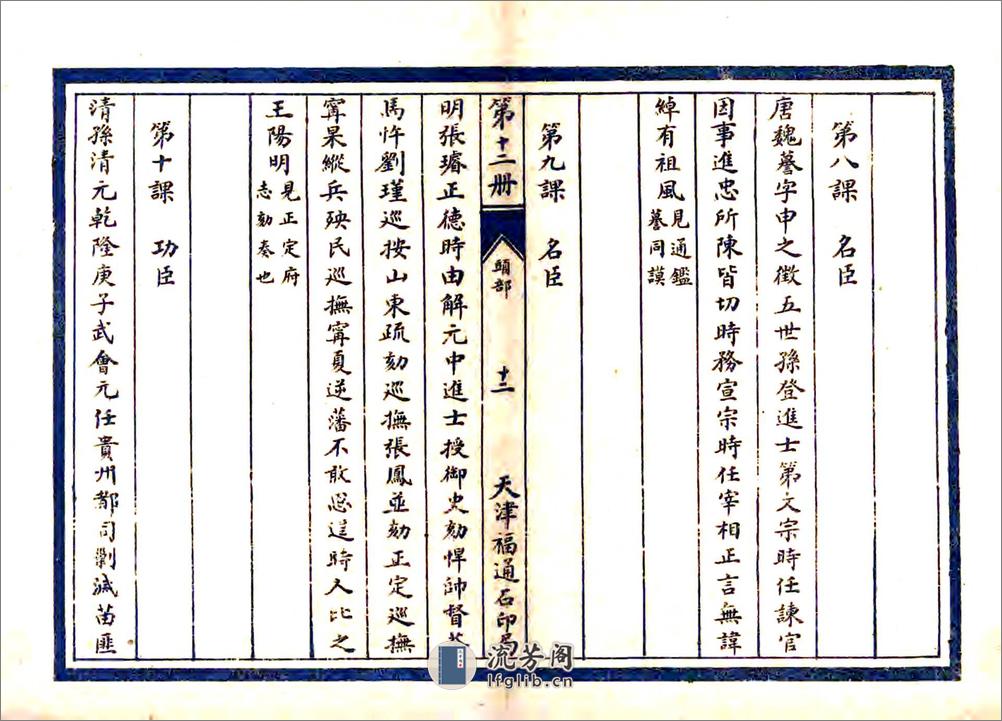 第八課　名臣
唐魏謩字申之徵五世孫登進士第文宗時任諫官
因事進忠所陳皆切時務宣宗時任宰相正言無諱
綽有祖風見通鑑
謩同謨
第九課　名臣
第十二册　頭部　十二　天津福通石印局
明張璿正德時由解元中進士授御史劾悍帥督
馬忤劉瑾巡按山東疏劾巡撫張鳳並劾正定巡撫
甯杲縱兵殃民巡撫甯夏逆藩不敢恣逞時人比之
王陽明見正定府
志劾奏也
第十課　功臣
清孫清元乾隆庚子武會元任貴州都司剿滅苗匪
流芳阁
lfglib.cn